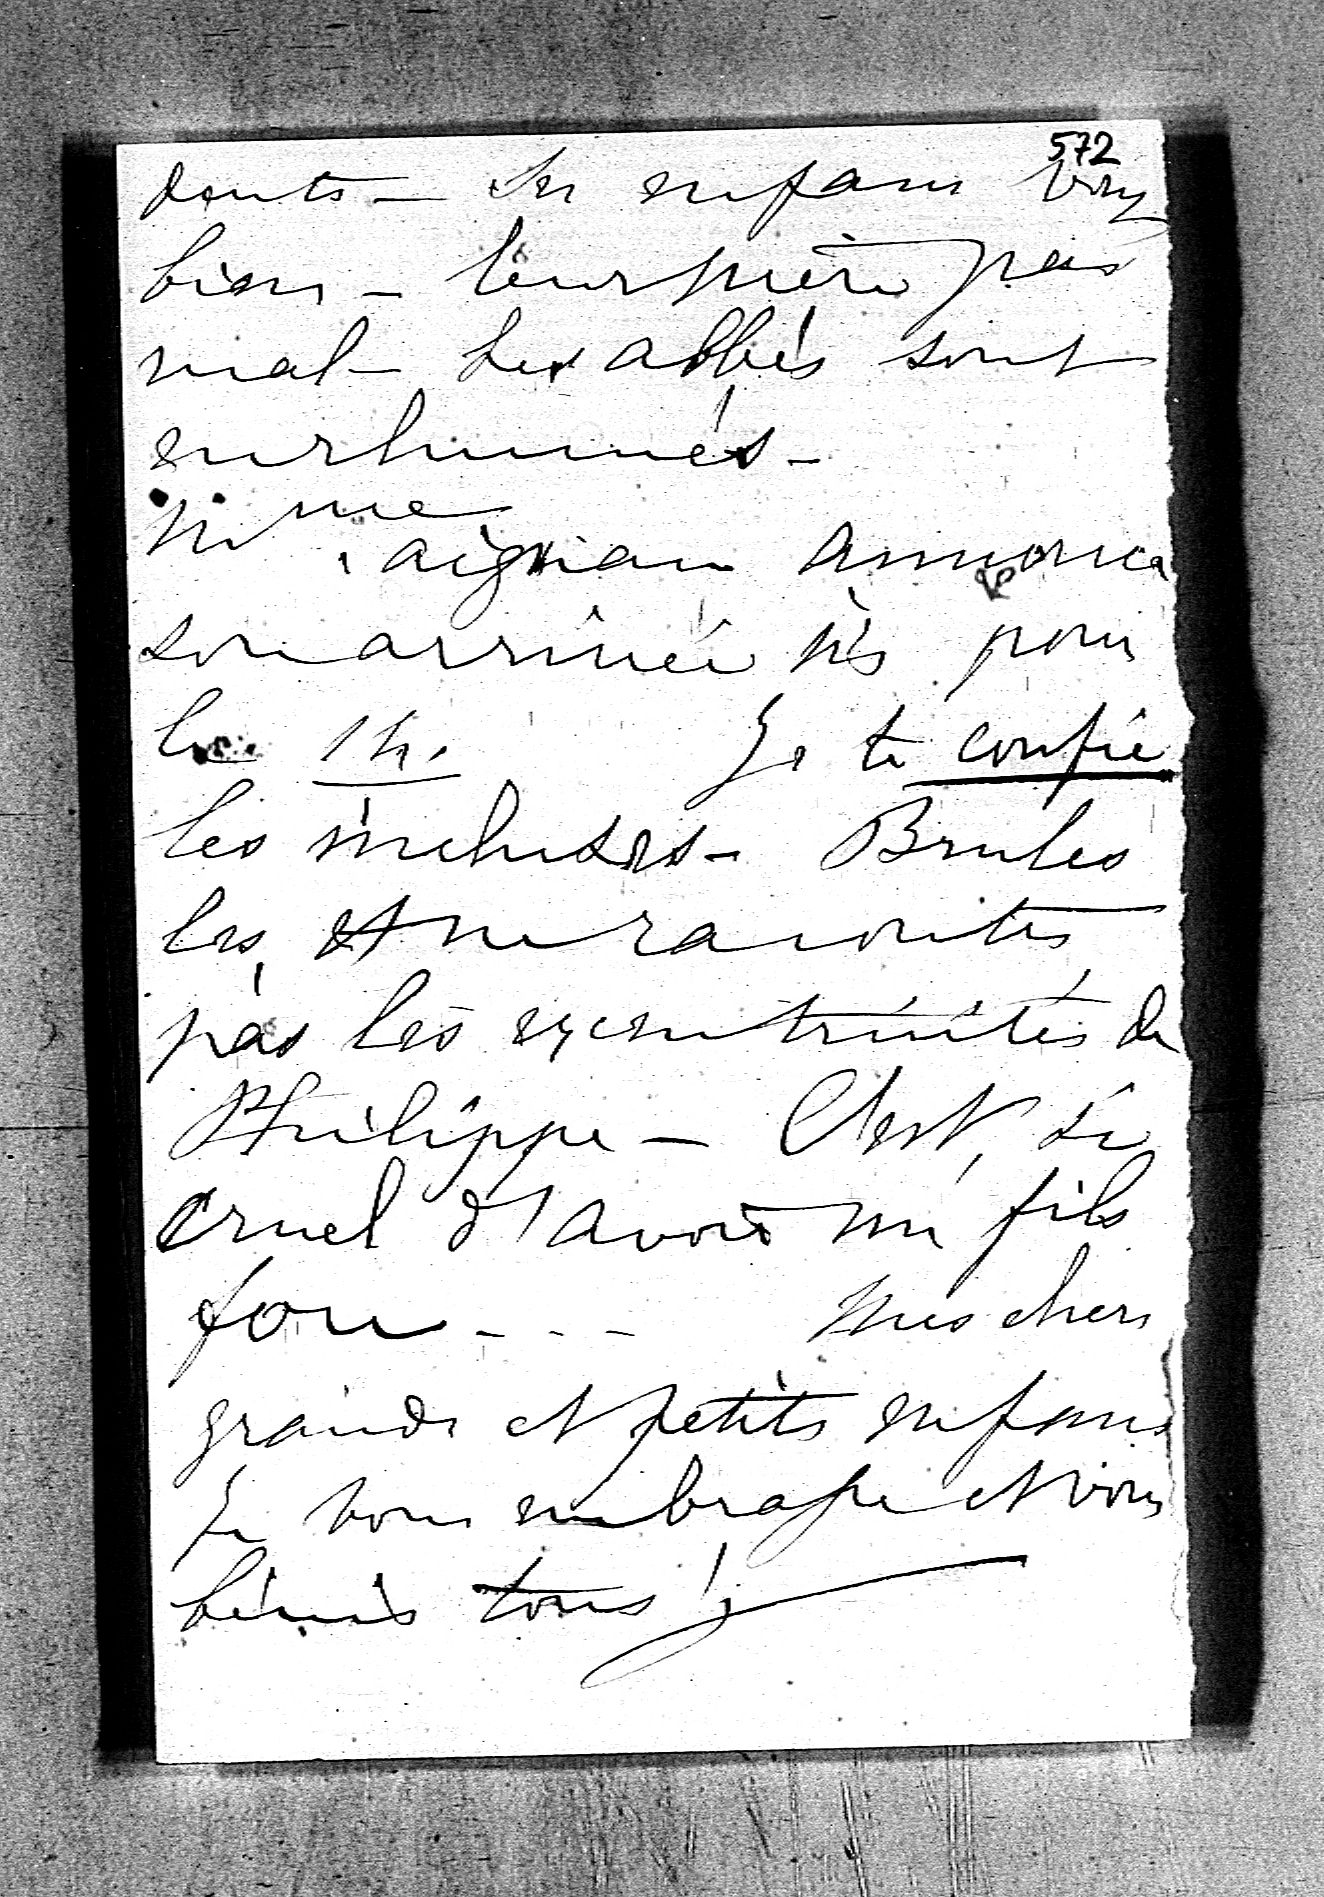 572
dents — Les enfans vont
bien — leur mère pas
mal — Les abbés sont
enrhumés —
Mme aignan annonce
son arrivée ici pour
le 14. Je te confie
les incluses — Brules
les, et ne racontes
pas les excentricités de
Philippe — C'est si
cruel d'avoir un fils
fou - - - Mes chers
grands et petits enfans
Je vous embrasse et vous
bénis tous!